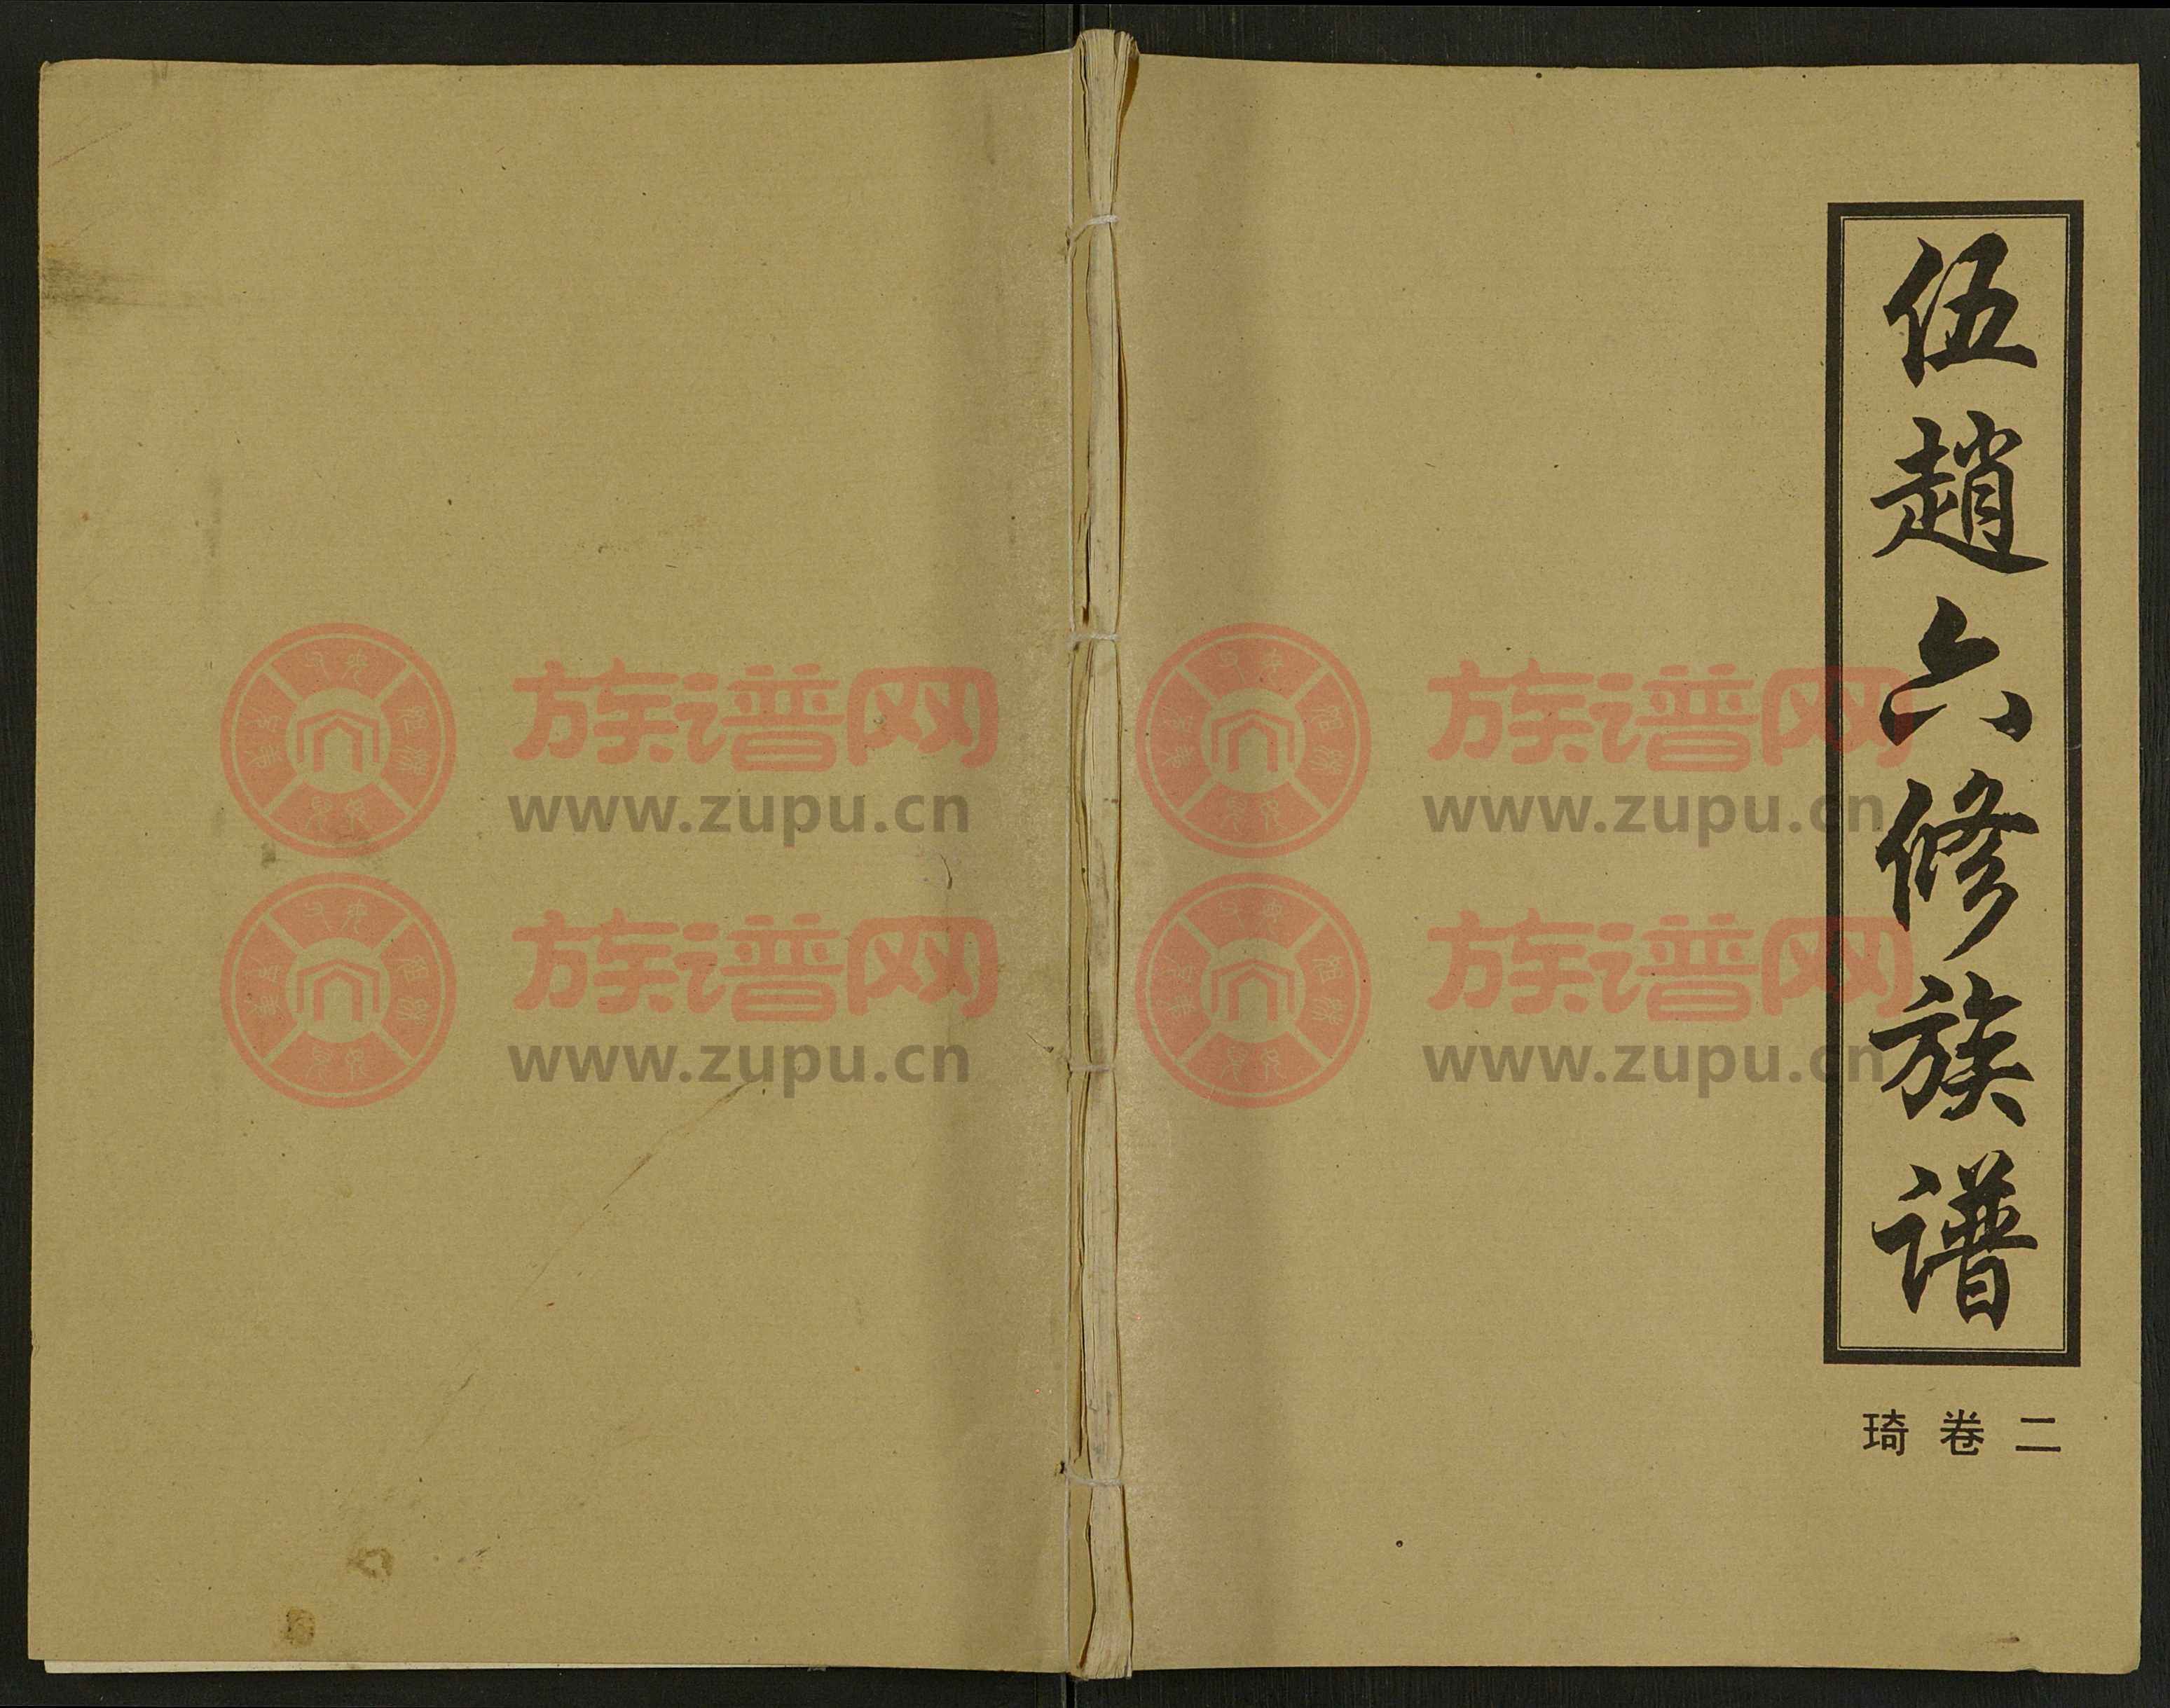 伍趙六修族谱
琦卷二
族谱网
www.zupu.cn
族谱网
www.zupu.cn
族谱网
www.zupu.cn
族谱网
www.zupu.cn